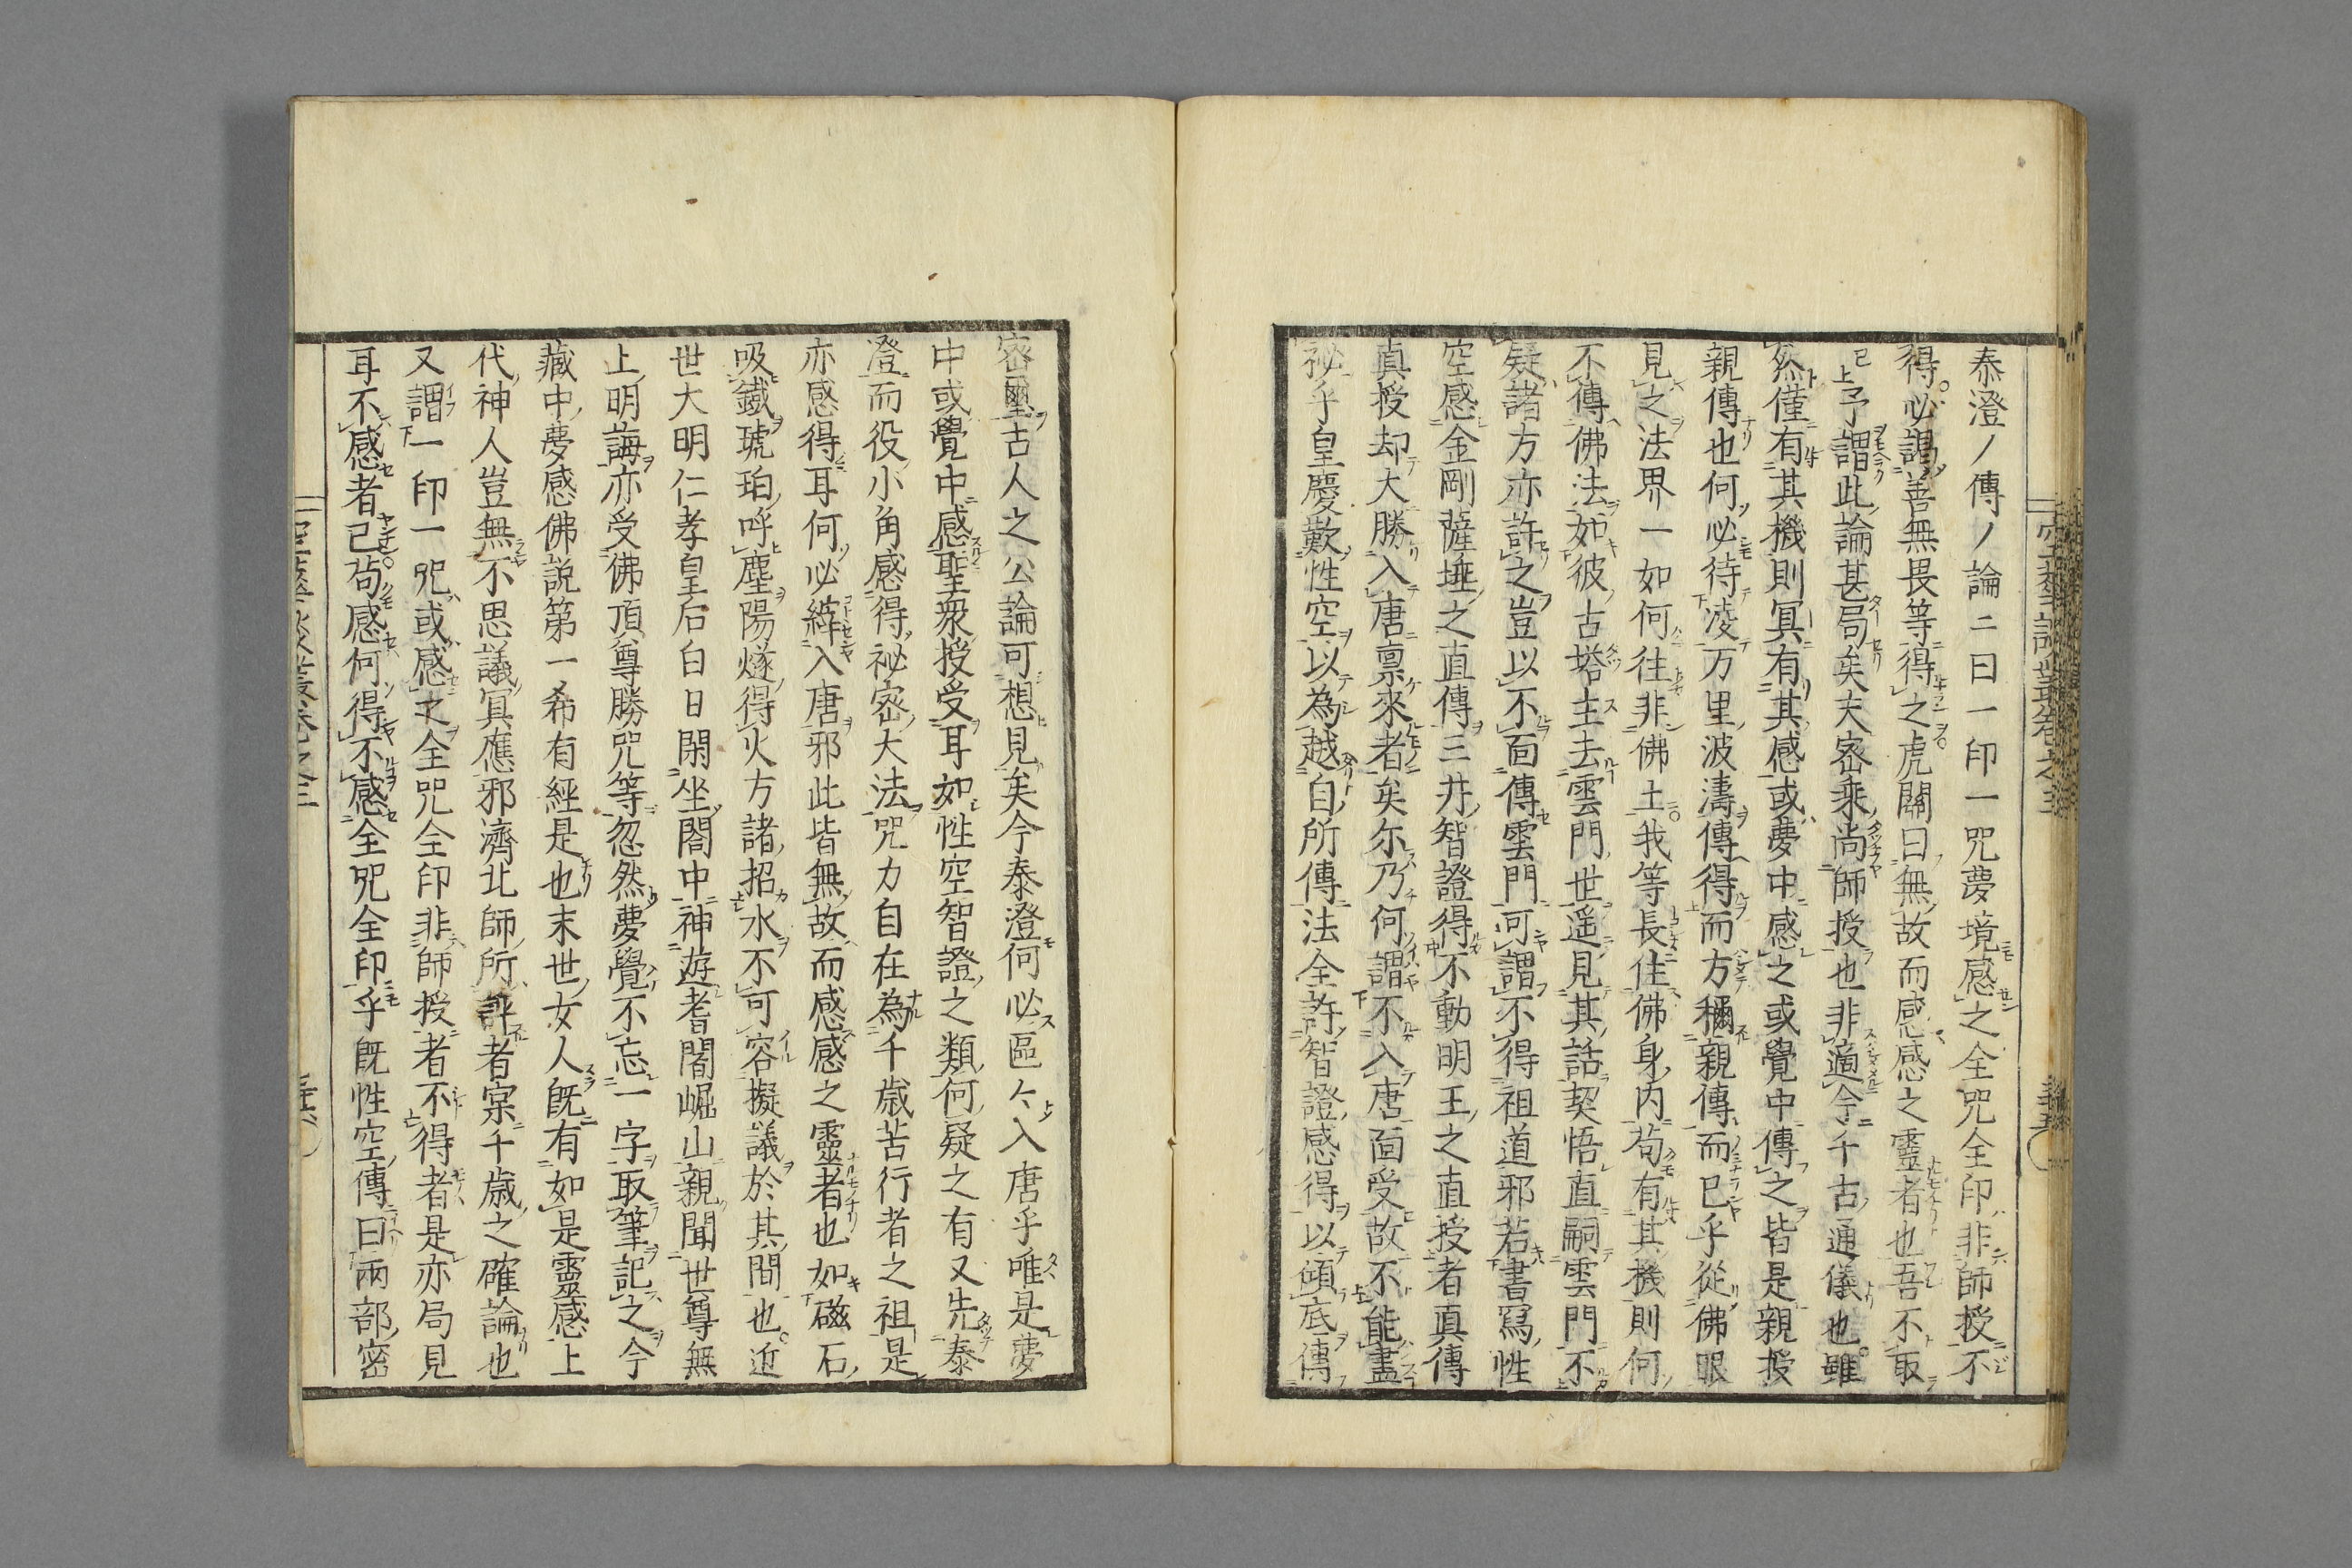 泰澄ノ傳ノ論ニ曰一印一咒夢境感之全咒全印非師授不
得必謁善無畏等得之虎關曰無故而感感之靈者也吾不取
已上予謂此論甚局矣夫密乘尚師授也非適今千古通儀也雖
然僅有其機則冥有其感或夢中感之或覺中傳之皆是親授
親傳也何必待凌万里波濤傳得而方稱親傳而已乎從佛眼
見之法界一如何往非佛土我等長住佛身内苟有其機則何
不傳佛法如彼古塔主去雲門世遥見其話契悟直嗣雲門不
疑諸方亦許之豈以不面傳雲門可謂不得祖道邪若書寫性
空感金剛薩埵之直傳三井智證得不動明王之直授者真傳
真授却大勝入唐禀來者矣尔乃何謂不入唐面受故不能盡
祕乎皇慶歎性空以為越自所傳法全許智證感得以傾底傳
密璽古人之公論可想見矣今泰澄何必區々入唐乎唯是夢
中或覺中感聖衆授受耳如性空智證之類何疑之有又先泰
澄而役小角感得祕密大法咒力自在為千歳苦行者之祖是
亦感得耳何必縡入唐邪此皆無故而感感之靈者也如磁石
吸鐵琥珀呼塵陽燧得火方諸招水不可容擬議於其間也近
世大明仁孝皇后白日閑坐閤中神遊耆闍崛山親聞世尊無
上明誨亦受佛頂尊勝咒等忽然夢覺不忘一字取筆記之今
藏中夢感佛説第一希有經是也末世女人既有如是靈感上
代神人豈無不思議冥應邪濟北師所評者寔千歳之確論也
又謂一印一咒或感之全咒全印非師授者不得者是亦局見
耳不感者已苟感何得不感全咒全印乎既性空傳曰兩部密